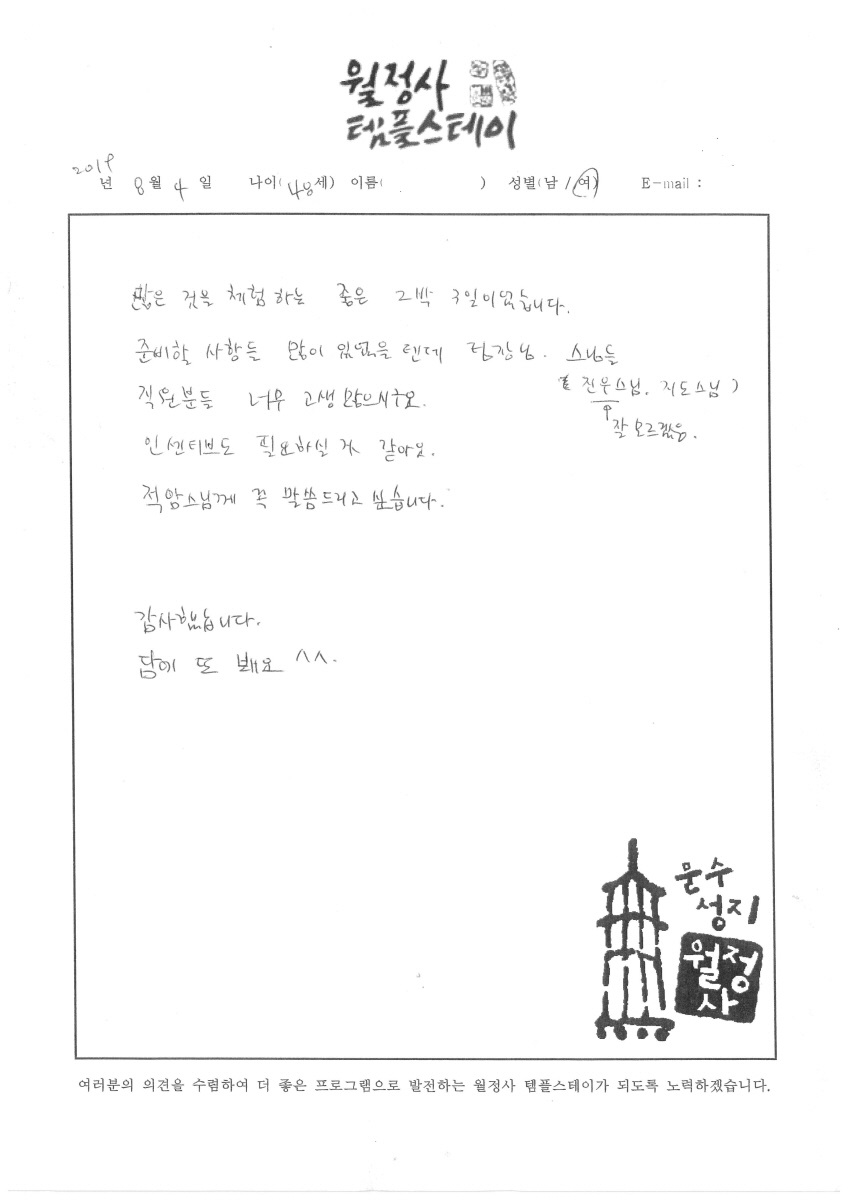 월정사
템플스테이
2019년 8월 4일 나이(48세) 이름( ) 성별(남/여) E-mail :
많은 것을 체험하는 좋은 2박 3일이었습니다.
준비할 사항들 많이 있었을 텐데 팀장님. 스님들
(진우스님, 지도스님)
잘 모르겠음.
직원분들 너무 고생 많으시구요.
인센티브도 필요하실 거 같아요.
적암스님께 꼭 말씀드리고 싶습니다.
감사했습니다.
담에 또 봬요 ^^.
문수
성지
월정
사
여러분의 의견을 수렴하여 더 좋은 프로그램으로 발전하는 월정사 템플스테이가 되도록 노력하겠습니다.